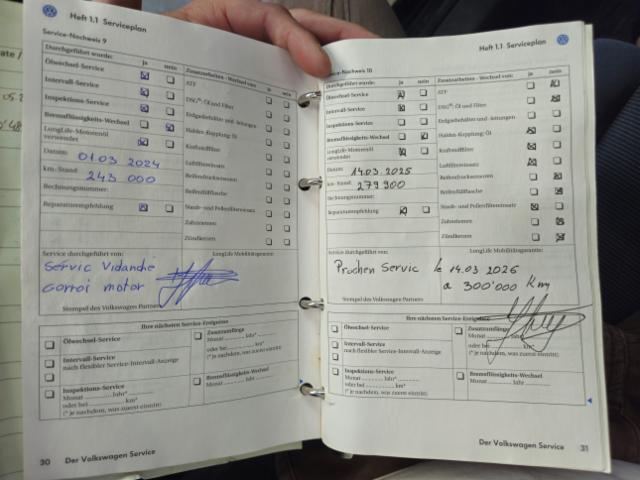 Heft 1.1 Serviceplan
Service-Nachweis 9
Durchgeführt wurde: ja nein
Ölwechsel-Service
Intervall-Service
Inspektions-Service
Bremsflüssigkeits-Wechsel
LongLife-Motorenöl
verwendet
Datum: 01.03 2024
km-Stand: 243 000
Rechnungsnummer:
Reparaturempfehlung
Zusatzarbeiten - Wechsel von: ja nein
ATF
DSG®: Öl und Filter
Erdgasbehälter und -leitungen
Haldex-Kupplung: Öl
Kraftstofffilter
Luftfiltereinsatz
Reifendruckssensoren
Reifenfüllflasche
Staub- und Pollenfiltereinsatz
Zahnriemen
Zündkerzen
Service durchgeführt von:
LongLife Mobilitätsgarantie:
Servic Vidange
Stempel des Volkswagen Partners
Ihre nächsten Service-Ereignisse
Ölwechsel-Service
Intervall-Service
nach flexibler Service-Intervall-Anzeige
Inspektions-Service
Monat Jahr*
oder bei km*
(* je nachdem, was zuerst eintritt)
Zusatzumfänge
Monat Jahr*
oder bei km*
(* je nachdem, was zuerst eintritt)
Bremsflüssigkeits-Wechsel
Monat Jahr
30 Der Volkswagen Service
Heft 1.1 Serviceplan
Service-Nachweis 10
Durchgeführt wurde: ja nein
Ölwechsel-Service
Intervall-Service
Inspektions-Service
Bremsflüssigkeits-Wechsel
LongLife-Motorenöl
verwendet
Datum: 14.03 2025
km-Stand: 279 900
Rechnungsnummer:
Reparaturempfehlung
Zusatzarbeiten - Wechsel von: ja nein
ATF
DSG®: Öl und Filter
Erdgasbehälter und -leitungen
Haldex-Kupplung: Öl
Kraftstofffilter
Luftfiltereinsatz
Reifendruckssensoren
Reifenfüllflasche
Staub- und Pollenfiltereinsatz
Zahnriemen
Zündkerzen
Service durchgeführt von:
LongLife Mobilitätsgarantie:
Prochen Servic le 14.03 2026
a 300'000 Km
Stempel des Volkswagen Partners
Ihre nächsten Service-Ereignisse
Ölwechsel-Service
Intervall-Service
nach flexibler Service-Intervall-Anzeige
Inspektions-Service
Monat Jahr*
oder bei km*
(* je nachdem, was zuerst eintritt)
Zusatzumfänge
Monat Jahr*
oder bei km*
(* je nachdem, was zuerst eintritt)
Bremsflüssigkeits-Wechsel
Monat Jahr
Der Volkswagen Service 31